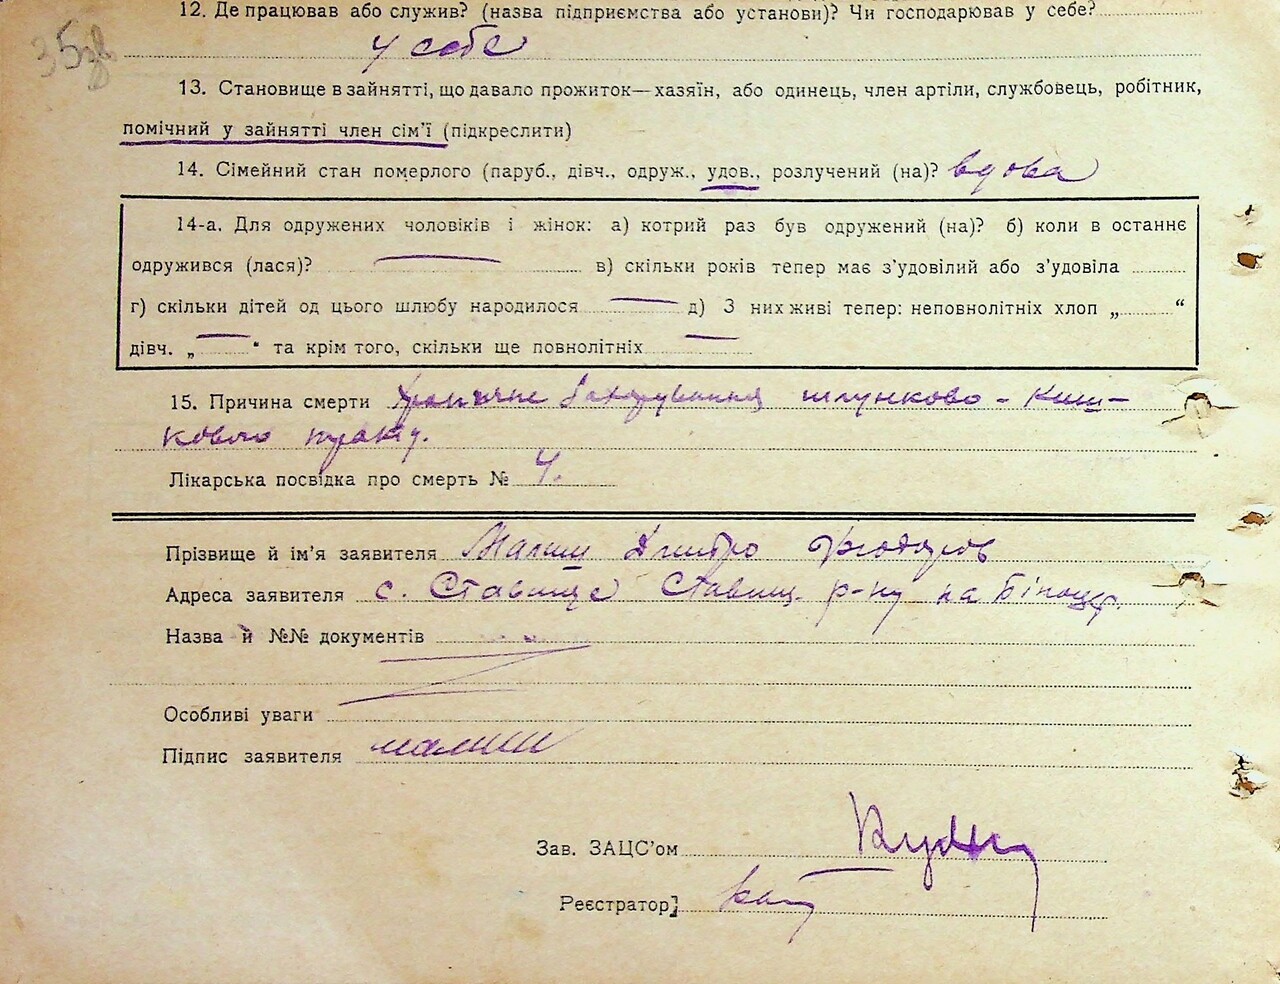 12. Де працював або служив? (назва підприємства або установи)? Чи господарював у себе?
35зв
у себе
13. Становище в зайнятті, що давало прожиток—хазяїн, або одинець, член артілі, службовець, робітник,
помічний у зайнятті член сім'ї (підкреслити)
14. Сімейний стан померлого (паруб., дівч., одруж., удов., розлучений (на)? вдова
14-а. Для одружених чоловіків і жінок: а) котрий раз був одружений (на)? б) коли в останнє
одружився (лася)? в) скільки років тепер має з'удовілий або з'удовіла
г) скільки дітей од цього шлюбу народилося д) З них живі тепер: неповнолітніх хлоп „ “
дівч. „ “ та крім того, скільки ще повнолітніх
15. Причина смерти Хронічне захорування шлунково-киш-
кового тракту.
Лікарська посвідка про смерть № 4.
Прізвище й ім'я заявителя Малиш Дмитро
Адреса заявителя с. Ставище Ставищ. р-ну на Білоцер.
Назва й №№ документів
Особливі уваги
Підпис заявителя Малиш
Зав. ЗАЦС'ом
Реєстратор